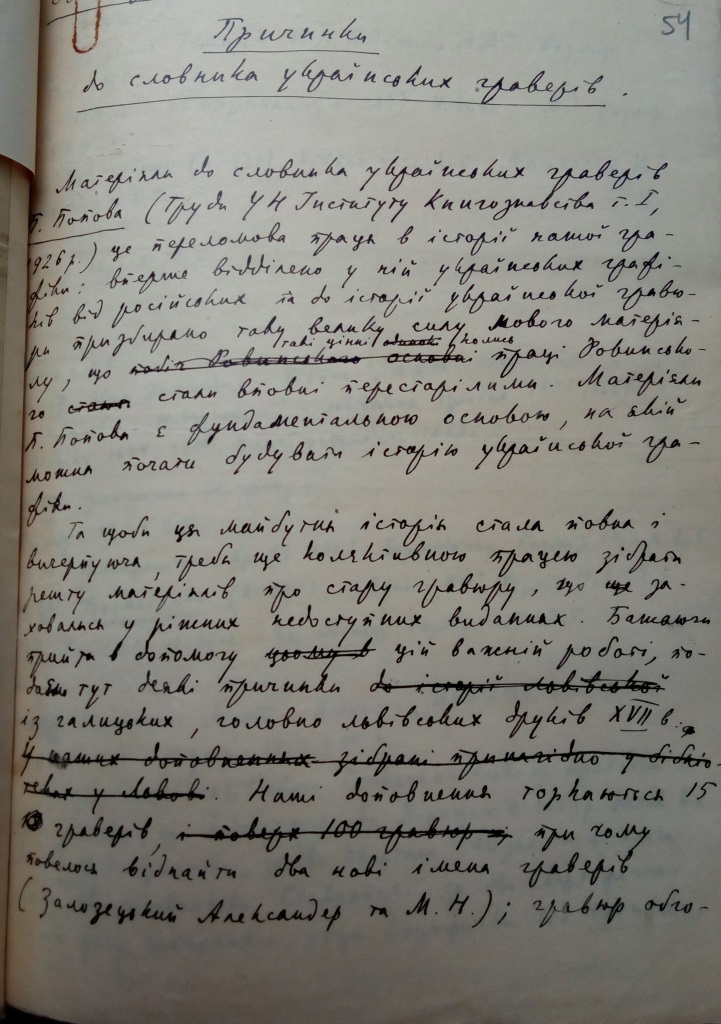 54
Причинки
до словника українських граверів.
Матеріяли до словника українських граверів
П. Попова (Труди УН Інституту Книгознавства т. I,
1926 р.) це переломова праця в історії нашої гра-
фіки: вперше відділено у ній українських графі-
ків від російських та до історії української гравю-
ри призбирано таку велику силу нового матерія-
такі цінні колись
лу, що побіч Ровинського основні праці Ровинсько-
го стали стали вповні перестарілими. Матеріяли
П. Попова є фундаментальною основою, на якій
можна почати будувати історію української гра-
фіки.
Та щоби ця майбутня історія стала повна і
вичерпуюча, треба ще колективною працею зібрати
решту матеріялів про стару гравюру, що ще за-
ховалися у ріжних недоступних виданнях. Бажаючи
прийти в допомогу цьому в цій важній роботі, по-
даємо тут деякі причинки до історії львівської
із галицьких, головно львівських друків XVII в.
У наших доповненнях зібрані принагідно у бібліо-
теках у Львові. Наші доповнення торкаються 15
граверів, і поверх 100 гравюр, при чому
повелось віднайти два нові імена граверів
(Залозецький Александер та М. Н.); гравюр обго-